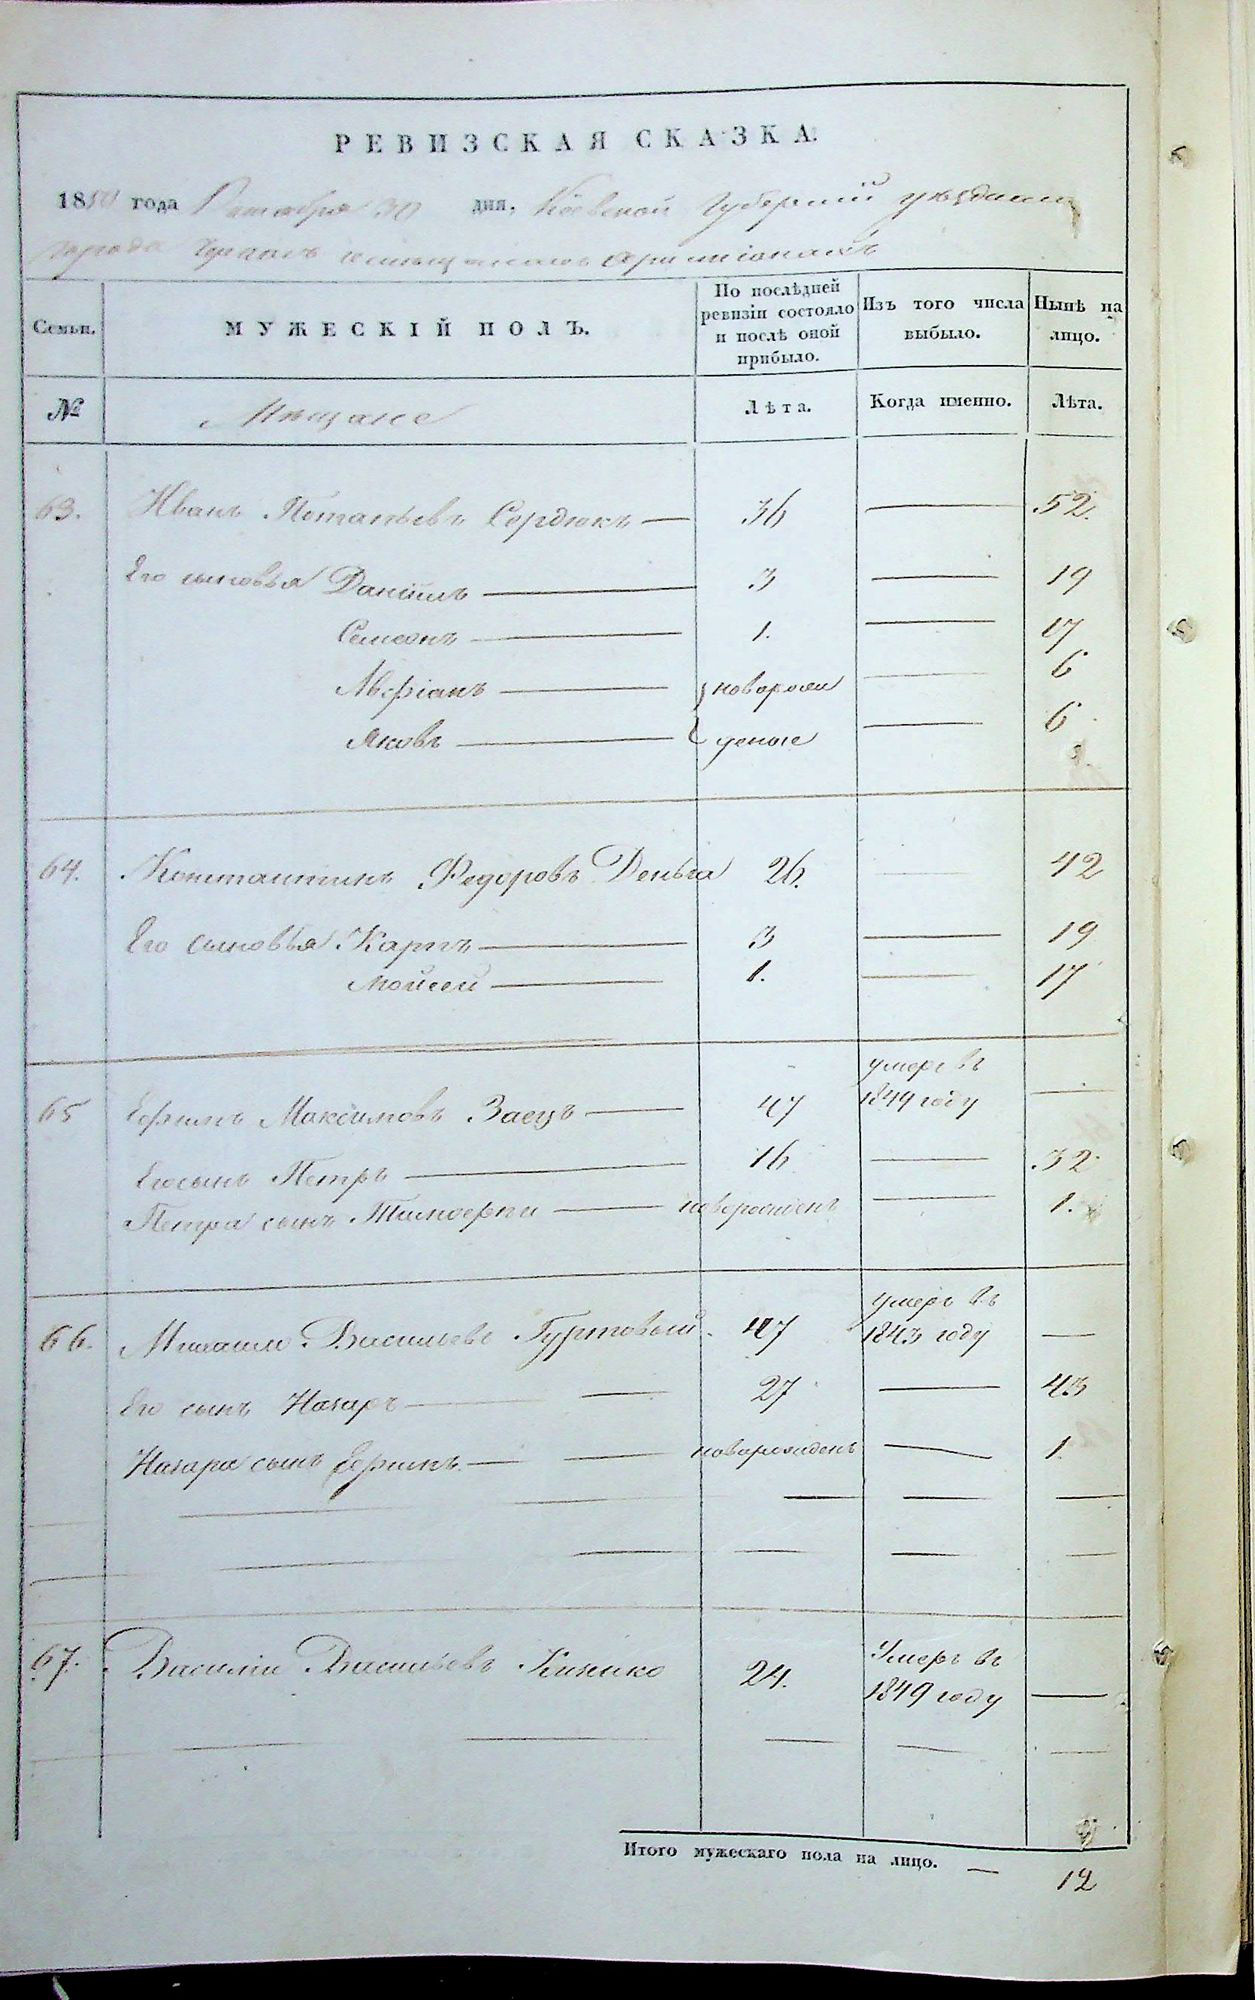 РЕВИЗСКАЯ СКАЗКА.
1850 года Октября 30 дня, Кіевской Губерніи уѣзднаго
города
Семьи. МУЖЕСКІЙ ПОЛЪ. По послѣдней ревизіи состояло и послѣ оной прибыло. Изъ того числа выбыло. Нынѣ на лицо.
№ Мѣщане Лѣта. Когда именно. Лѣта.
63. Иванъ Потапьевъ Сердюкъ — 36 — 52.
Его сыновья Даніилъ — 3 — 19
Семенъ — 1. — 17
Аверіанъ — новорож — 6
Яковъ — денные — 6
64. Константинъ Федоровъ Деньга 26. — 42
Его сыновья Карпъ — 3 — 19
Мойсей — 1. — 17
умеръ въ
65 Ефимъ Максимовъ Заецъ — 47 1849 году —
Его сынъ Петръ — 16 — 32
Петра сынъ Тимофей — новорожденъ — 1.
умеръ въ
66. Михаилъ Васильевъ Гуртовый. 47 1843 году —
Его сынъ Назаръ — 27 — 43
Назара сынъ Ефимъ — новорожденъ — 1.
Умеръ въ
67. Василій Васильевъ 24. 1849 году —
Итого мужескаго пола на лицо. — 12